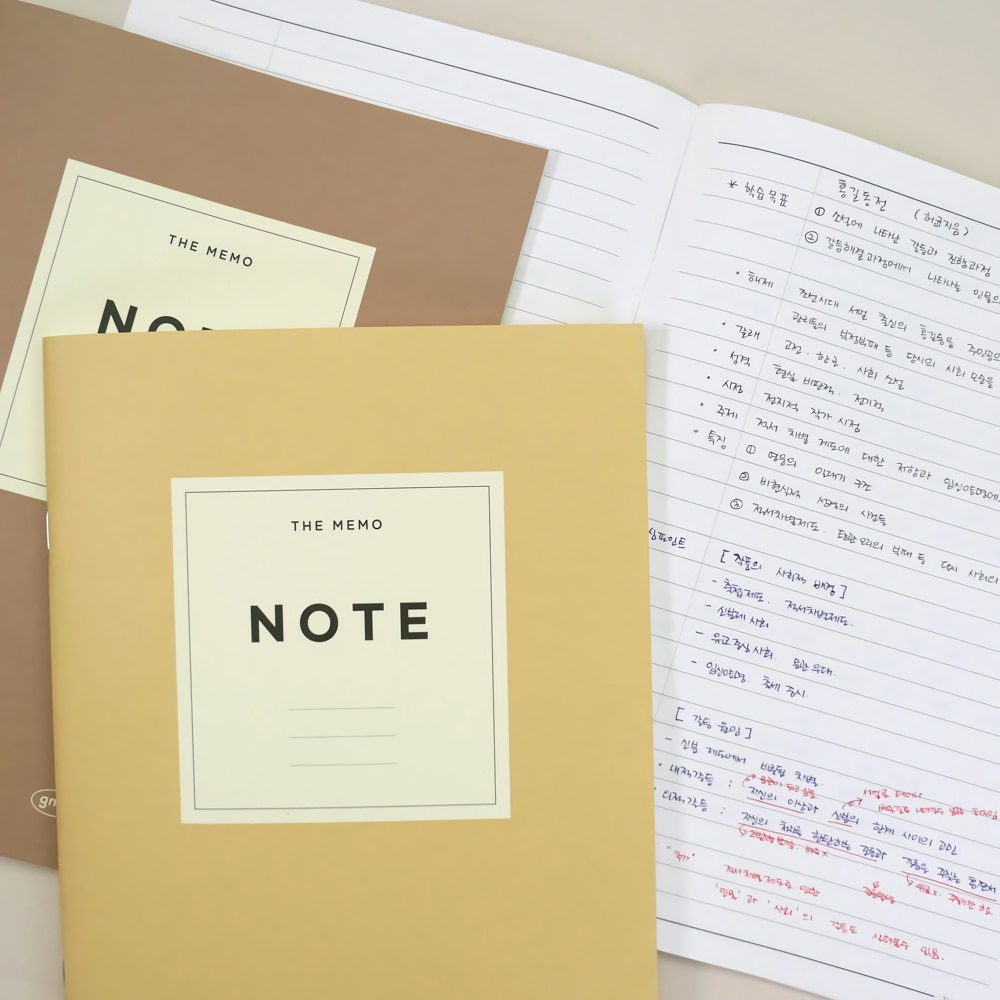 THE MEMO
NO
THE MEMO
NOTE
gn
* 학습목표 홍길동전 (허균지음)
① 소설에 나타난 갈등과 진행과정
② 갈등해결과정에서 나타나는 인물의
• 해제 조선시대 서얼 출신의 홍길동을 주인공으
관리들의 부정부패 등 당시의 사회 모습을
• 갈래 고전. 한글. 사회 소설
• 성격 현실 비판적. 전기적
• 시점 전지적 작가 시점
• 주제 적서 차별 제도에 대한 저항과 입신양명에
• 특징 ① 영웅의 일대기 구조
② 비현실적 설정의 사건들
③ 적서차별제도. 탐관오리의 부패 등 당시 사회의
심포인트 [작품의 사회적 배경]
- 축첩제도. 적서차별제도.
- 신분제 사회
- 유교중심사회. 우대.
- 입신양명. 출세 중시.
[갈등 요인]
- 신분 제도에서 비롯된 차별
• 내적갈등 : 자신의 이상과 신분의 한계 사이의 고민
• 외적갈등 : 자신의 처지를 한탄하는 길동과 길동을 꾸짖는 홍판서
적서차별제도로 인한
'인물'과 '사회'의 갈등도 살펴볼수 있음.